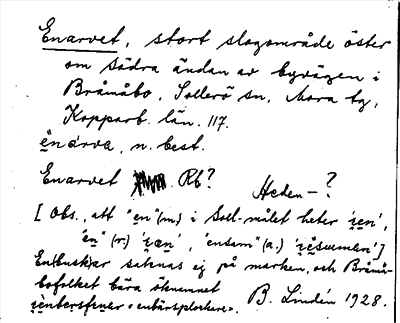 Enarvet, stort slogområde öster
om södra ändan av byvägen i
Bråmåbo, Sollerö sn, Mora tg,
Kopparb. län. 117.
ènárva, n. best.
Enarvet Rb?
Heden-?
[Obs., att "en" (m.) i Soll-målet heter 'ien',
"en" (r.) 'iæn', "ensam" (a.)
En(busk)ar saknas ej på marken, och Bråmå-
bofolket bära öknamnet
"enbärsplockare". B. Lindén 1928.